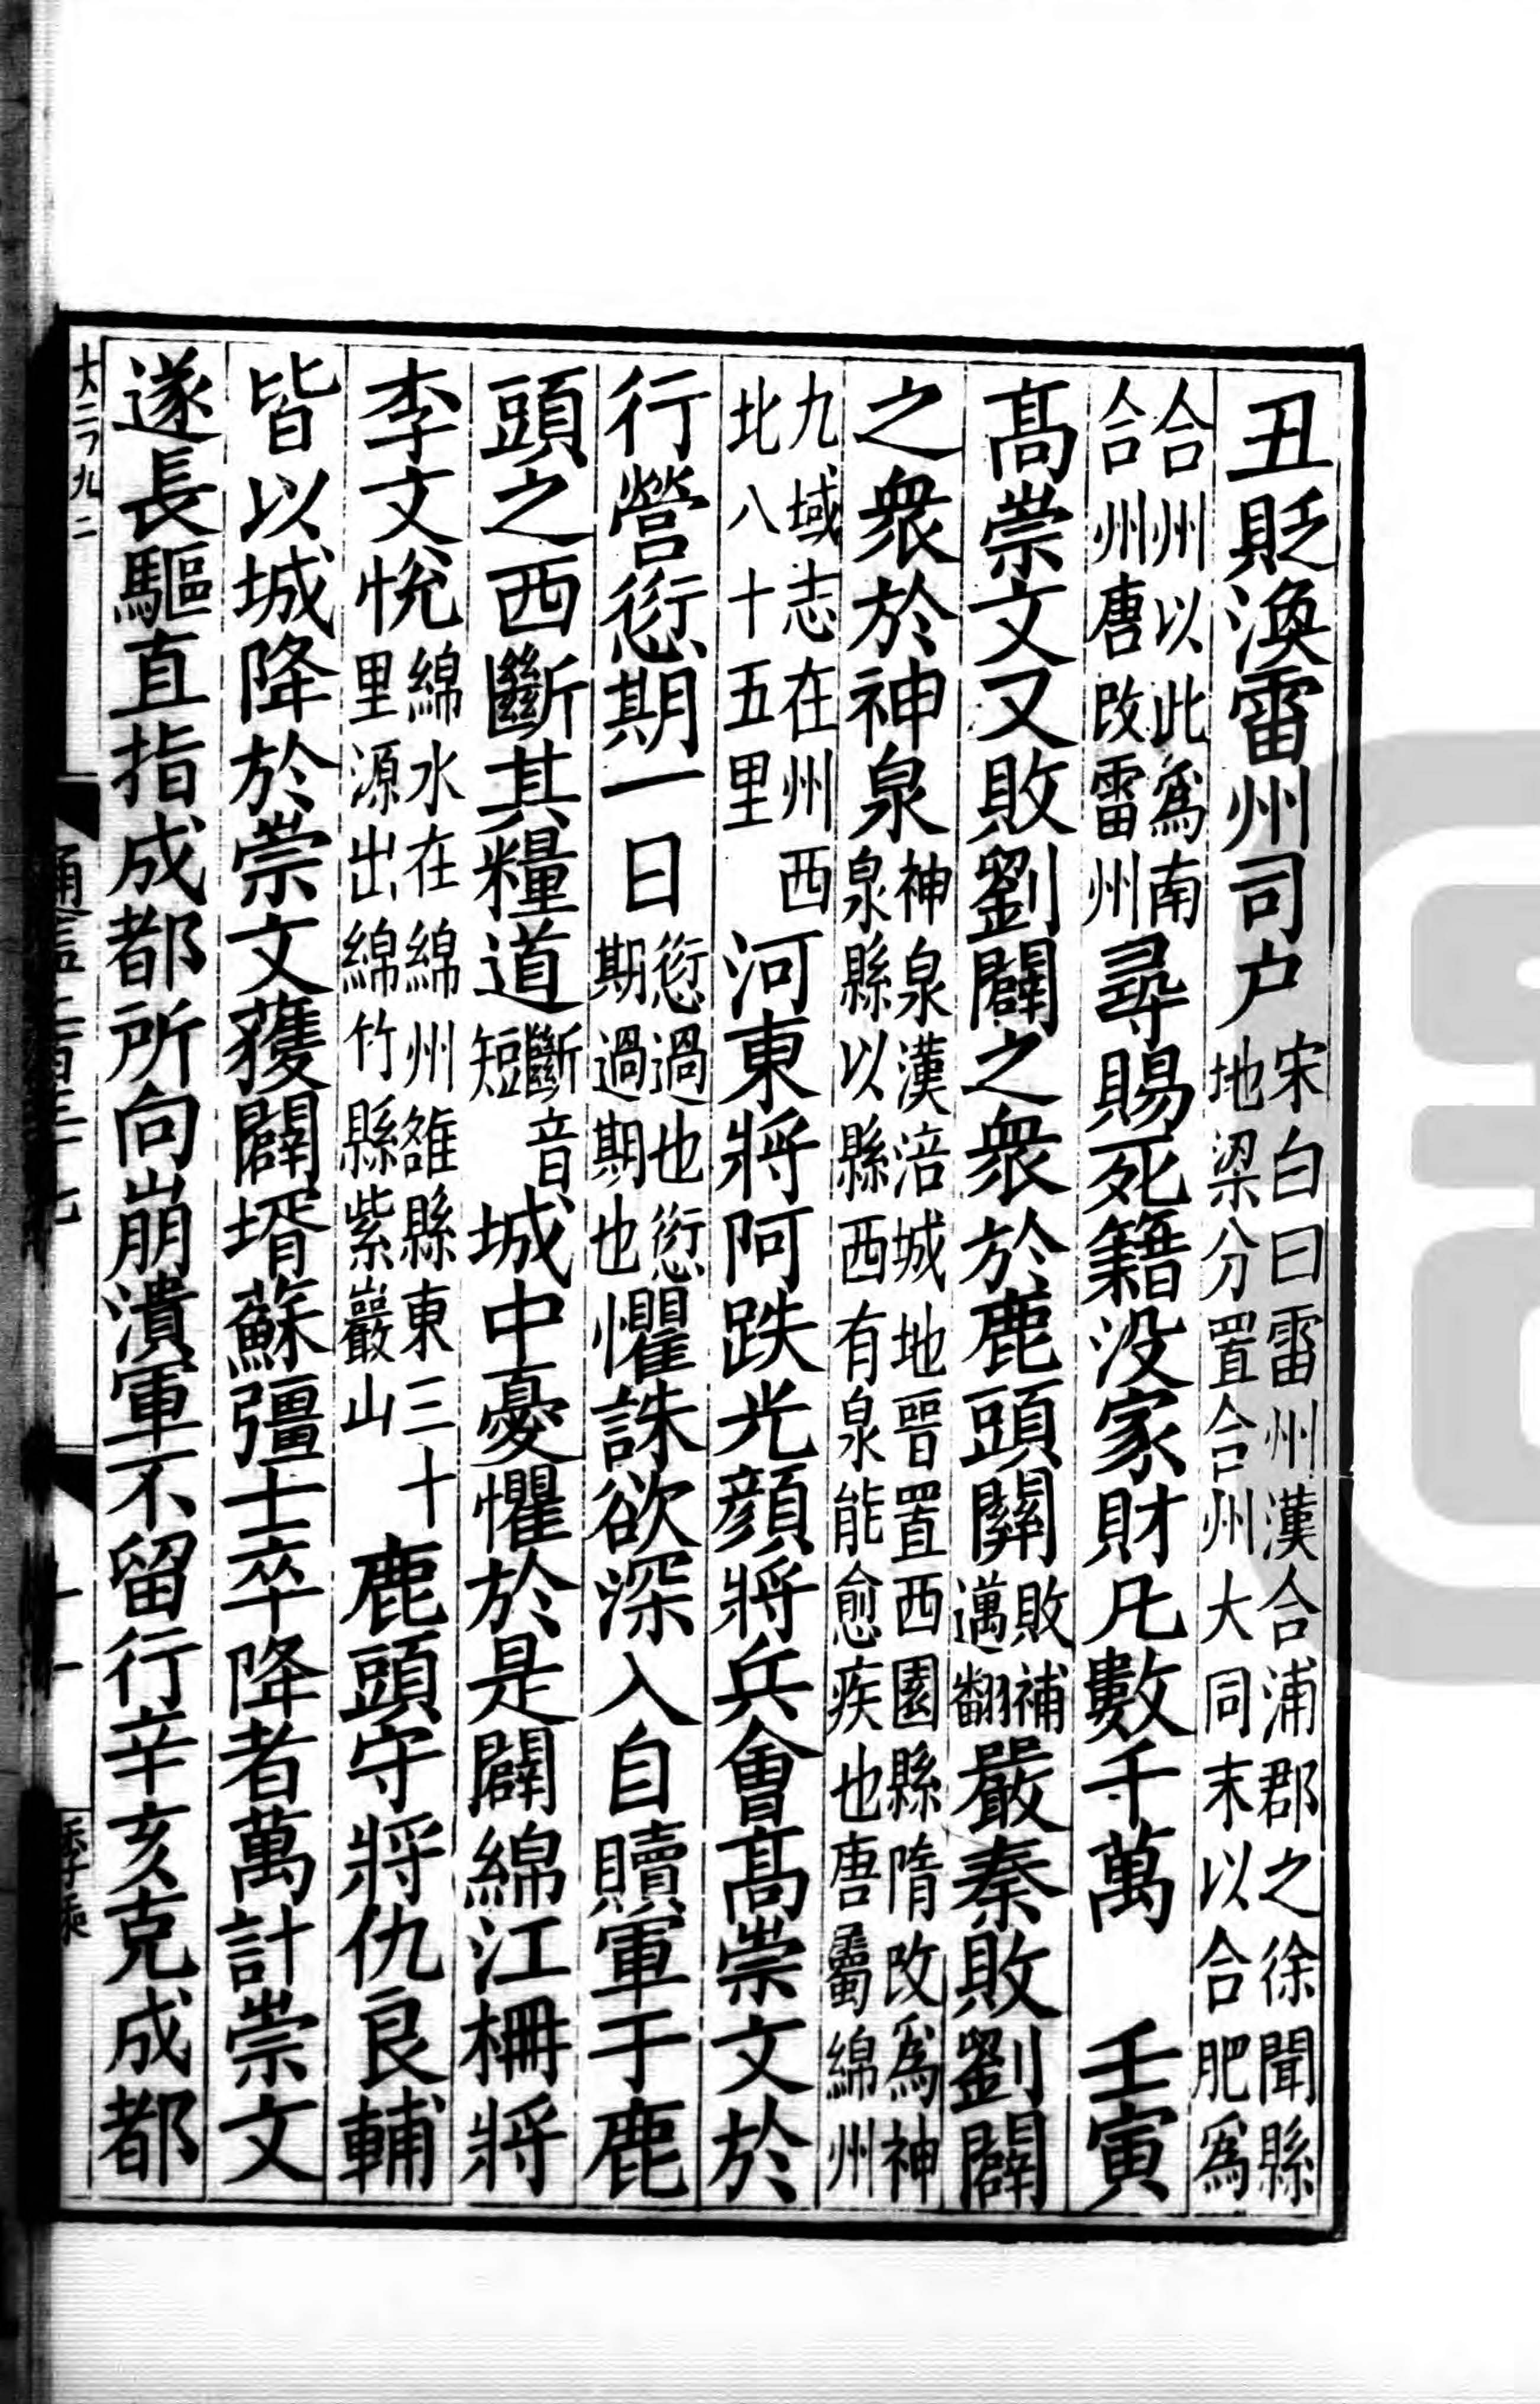 丑貶渙雷州司户宋白曰雷州漢合浦郡之徐聞縣地梁分置合州大同末以合肥爲
合州以此爲南合州唐改雷州尋賜死籍没家財凡數千萬　壬寅
髙崇文又敗劉闢之衆於鹿頭關敗補邁翻嚴秦敗劉闢
之衆於神泉神泉漢涪城地晉置西園縣隋改爲神泉縣以縣西有泉能愈疾也唐屬綿州
九域志在州西北八十五里河東將阿跌光顔將兵會髙崇文於
行營愆期一日愆過也愆期過期也懼誅欲深入自贖軍于鹿
頭之西斷其糧道斷音短城中憂懼於是闢綿江柵將
李文悅綿水在綿州雒縣東三十里源出綿竹縣紫巖山鹿頭守將仇良輔
皆以城降於崇文獲闢壻蘇彊士卒降者萬計崇文
遂長驅直指成都所向崩潰軍不留行辛亥克成都